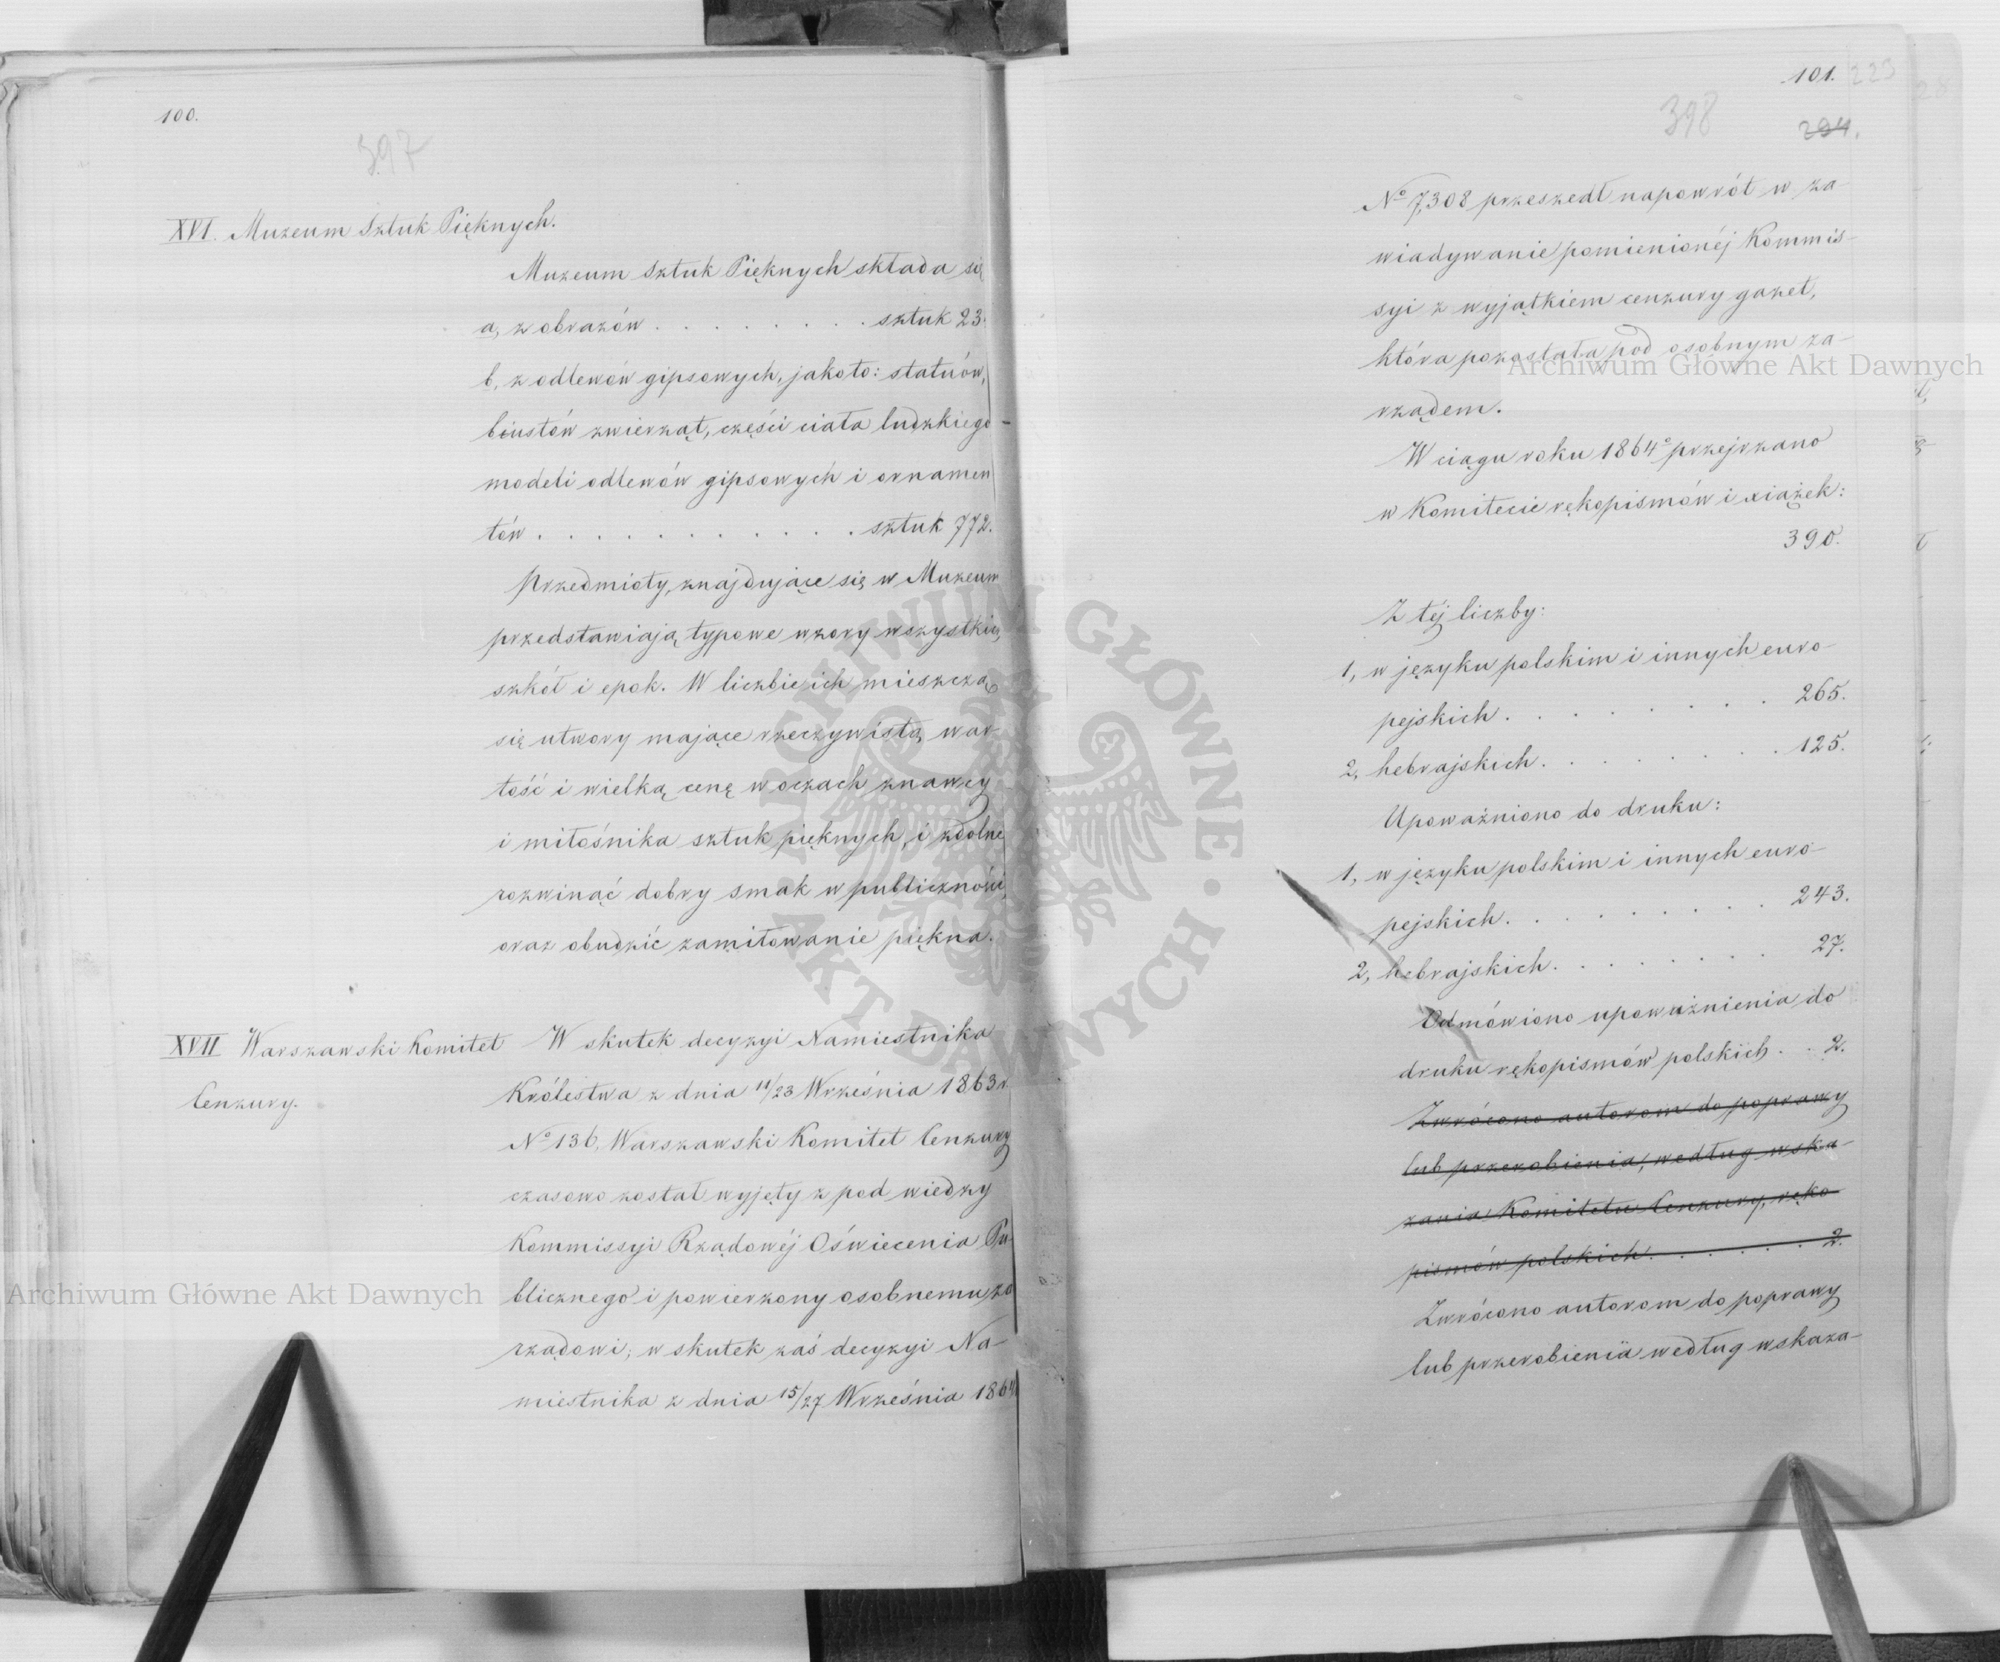 100.
397
XVI. Muzeum Sztuk Pięknych.
Muzeum Sztuk Pięknych składa się
a, z obrazów . . . . . . . . sztuk 23.
b, z odlewów gipsowych, jakoto: statuów,
biustów zwierząt, części ciała ludzkiego
modeli odlewów gipsowych i ornamen
tów . . . . . . . . . . . . sztuk 772.
Przedmioty, znajdujące się w Muzeum
przedstawiają typowe wzory wszystkich
szkół i epok. W liczbie ich mieszczą
się utwory mające rzeczywistą war-
tość i wielką cenę w oczach znawcy
i miłośnika sztuk pięknych, i zdolne
rozwinąć dobry smak w publiczności,
oraz obudzić zamiłowanie piękna.
XVII Warszawski Komitet
Cenzury.
W skutek decyzyi Namiestnika
Królestwa z dnia 11/23 Września 1863 r.
No 136, Warszawski Komitet Cenzury
czasowo został wyjęty z pod wiedzy
Kommissyi Rządowéj Oświecenia Pu-
blicznego i powierzony osobnemu za
rządowi; w skutek zaś decyzyi Na-
miestnika z dnia 15/27 Września 1864
101.
223
398
294.
No 7,308 przeszedł napowrót w za
wiadywanie pomienionéj Kommis-
syi z wyjątkiem cenzury gazet,
która pozostała pod osobnym za-
rządem.
W ciągu roku 1864o przejrzano
w Komitecie rękopismów i xiążek:
390.
Z téj liczby:
1, w języku polskim i innych euro-
pejskich . . . . . . . . . 265.
2, hebrajskich . . . . . . . 125.
Upoważniono do druku:
1, w języku polskim i innych euro-
pejskich . . . . . . . . . 243.
2, hebrajskich . . . . . . . . 27.
Odmówiono upoważnienia do
druku rękopismów polskich . . 2.
Zwrócono autorom do poprawy
lub przerobienia, według wska-
zania Komitetu Cenzury, ręko
pismów polskich . . . . . . 2.
Zwrócono autorom do poprawy
lub przerobienia według wskaza-
Archiwum Główne Akt Dawnych
Archiwum Główne Akt Dawnych
ARCHIWUM GŁÓWNE · AKT DAWNYCH ·